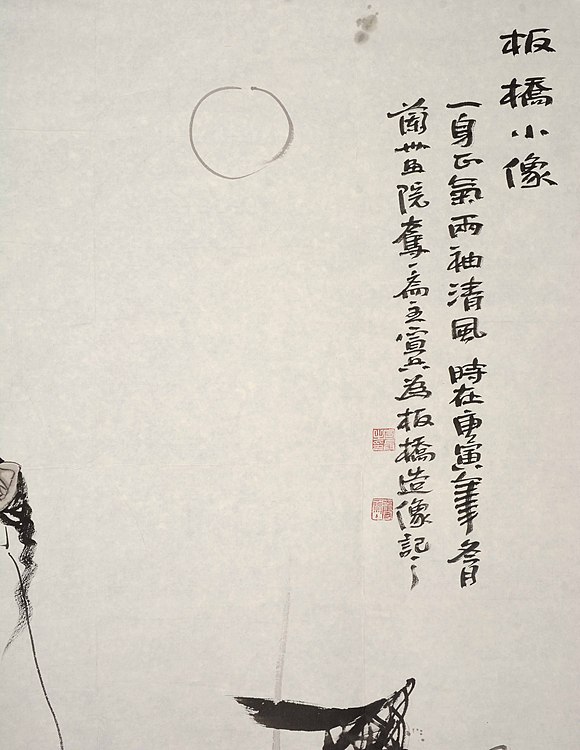 板橋小像
一身正氣兩袖清風 時在庚寅年冬月
蘭州畫院奪〻齋主宣兵為板橋造像記之